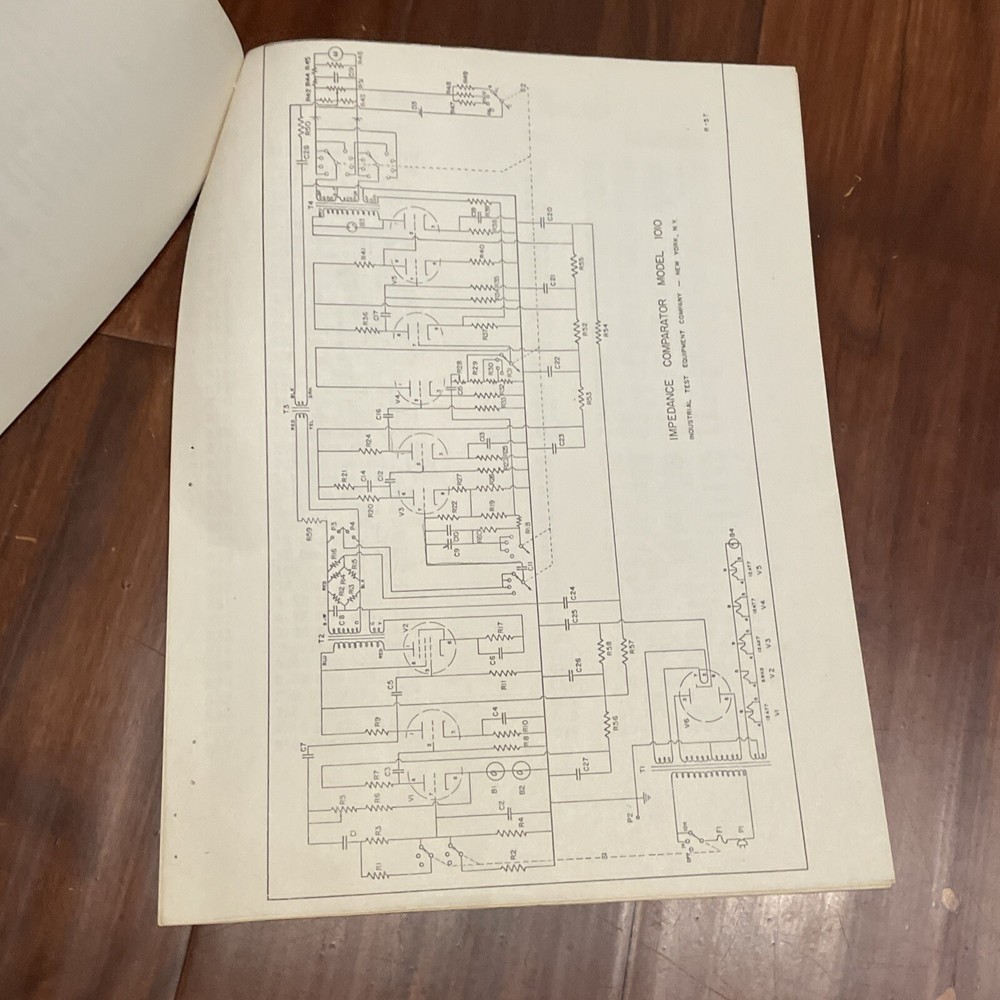 IMPEDANCE COMPARATOR MODEL 1010
INDUSTRIAL TEST EQUIPMENT COMPANY — NEW YORK, N.Y.
T3
RED
BLK
YEL
T4
C28
R50
R42 R44 R45
R46
R48
R49
R47
S2
R59
P3
P4
R16
R15
R14
T2
BLU
RED
C8
V2
C5
C6
R17
R11
R9
C7
C4
R10
R8
C3
R7
R6
R5
V1
B1
B2
C2
R4
C1
R3
R1
R2
R21
C14
C12
R20
R24
V3
R22
R27
R19
C9
C10
R18
C11
C13
C16
V4
R28
R29
R30
R31
R36
C17
R37
R41
V5
R40
C20
C21
C22
C23
C24
C25
C26
C27
R55
R52
R54
R53
R58
R57
R56
P2
S1
T1
V6
F1
P1
V1
V2
V3
V4
V5
B4
12AT7
12AT7
12AT7
12AT7